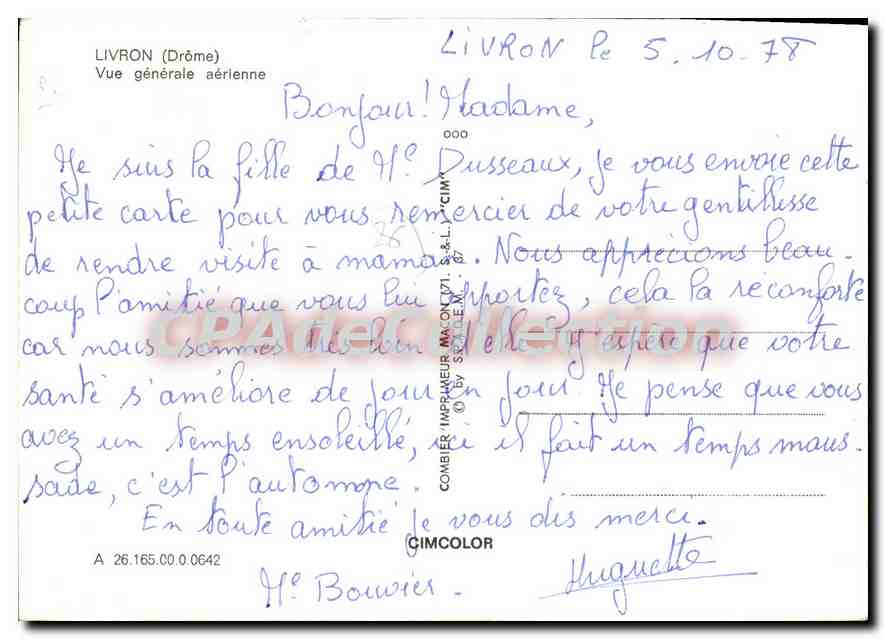 LIVRON (Drôme)
Vue générale aérienne
LIVRON le 5.10.78
Bonjour! Madame,
Je suis la fille de Me Dusseaux, je vous envoie cette
petite carte pour vous remercier de votre gentillesse
de rendre visite à maman. Nous apprécions beau-
coup l'amitié que vous lui apportez, cela la réconforte
car nous sommes très loin d'elle. J'espère que votre
santé s'améliore de jour en jour. Je pense que vous
avez un temps ensoleillé, ici il fait un temps maus-
sade, c'est l'automne.
En toute amitié je vous dis merci.
Me Bouvier. Huguette
COMBIER IMPRIMEUR MACON (71. S-&-L.) "CIM"
© by S.P.A.D.E.M. 67
CIMCOLOR
A 26.165.00.0.0642
CPAdeCollection